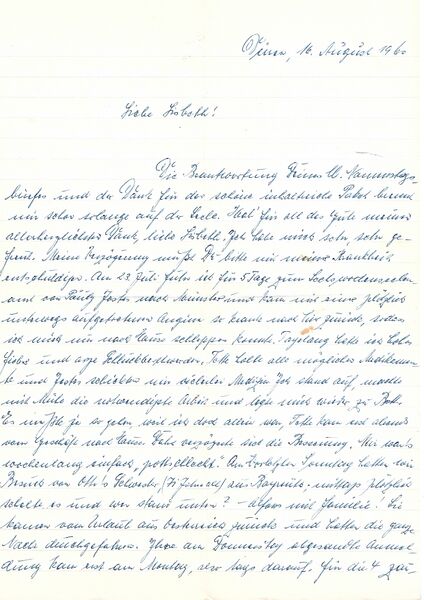 16. August 196
Liebe Lisbeth!
Die Beantwortung Deines lb. Namenstags-
briefes und der Dank für das schöne inhaltreiche Paket brennt
mir schon solange auf der Seele. Hab' für all das Gute meinen
allerherzlichsten Dank, liebe Lisbeth. Ich habe mich sehr, sehr ge-
freut. Meine Verzögerung mußt Du bitte mit meiner Krankheit
entschuldigen. Am 22. Juli fuhr ich für 5 Tage zum Sechswochenseelen-
amt von Paula nach Münster und kam mit einer plötzlich
unterwegs aufgetretenen Angina so krank nach hier zurück, sodass
ich mich nur nach Hause schleppen konnte. Tagelang hatte ich hohes
Fieber und arge Schluckbeschwerden. holte alle möglichen Medikamen-
te und schickten mir vielerlei Medizin. Ich stand auf, machte
mit Mühe die notwendigste Arbeit und legte mich wieder zu Bett.
Es mußte ja so gehen, weil ich doch allein war. kam erst abends
vom Geschäft nach Hause. verzögerte sich die Besserung. Mir war's
wochenlang einfach „gottsschlecht". Am vorletzten Sonntag hatten wir
Besuch von Otto's Schwester, aus Bayreuth; mittags plötzlich
schellte es und wer stand unten? – mit Familie! Sie
kamen vom Urlaub aus Oesterreich zurück und hatten die ganze
Nacht durchgefahren. Ihre am Donnerstag abgesandte Anmel-
dung kam erst am Montag, also tags darauf. Für die 4